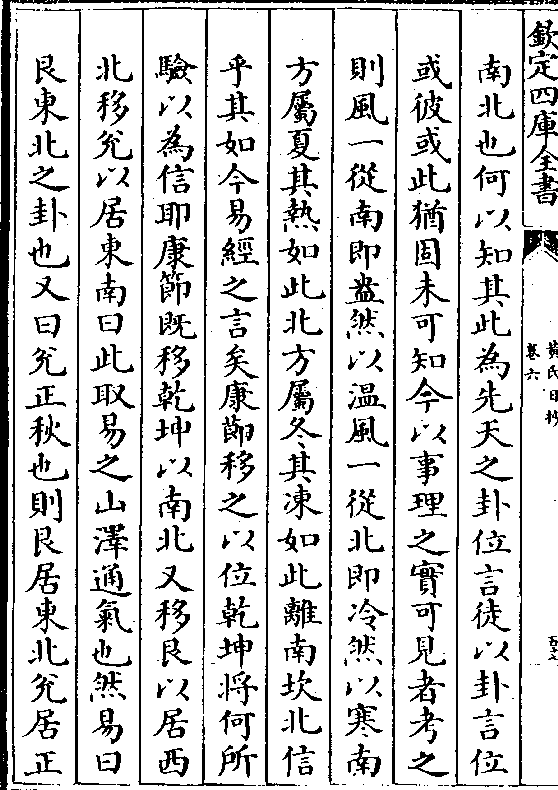 欽定四庫全書
黄氏日抄
卷六
南北也何以知其此為先天之卦位言徒以卦言位
或彼或此猶固未可知今以事理之實可見者考之
則風一從南即盎然以温風一從北即冷然以寒南
方屬夏其熱如此北方屬冬其凍如此離南坎北信
乎其如今易經之言矣康節移之以位乾坤將何所
驗以為信耶康節既移乾坤以南北又移艮以居西
北移兊以居東南曰此取易之山澤通氣也然易曰
艮東北之卦也又曰兊正秋也則艮居東北兊居正